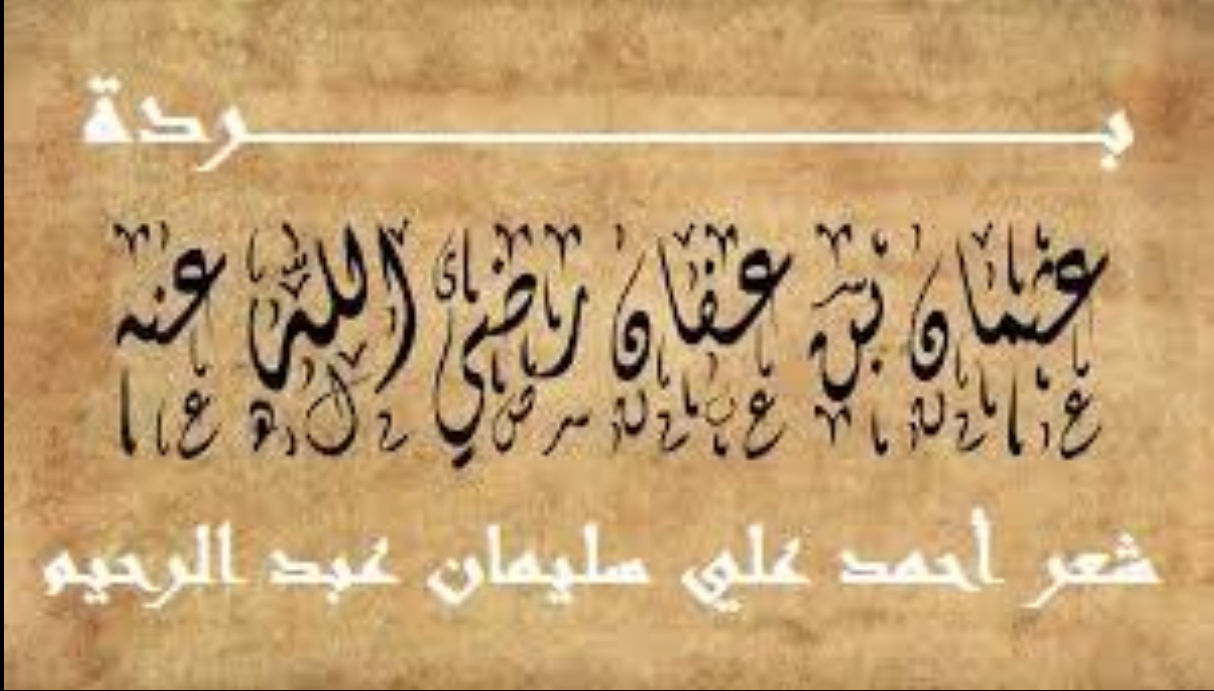 بـــــــــردة
عثمان بن عفان رضي الله عنه
شعر أحمد علي سليمان عبد الرحيم